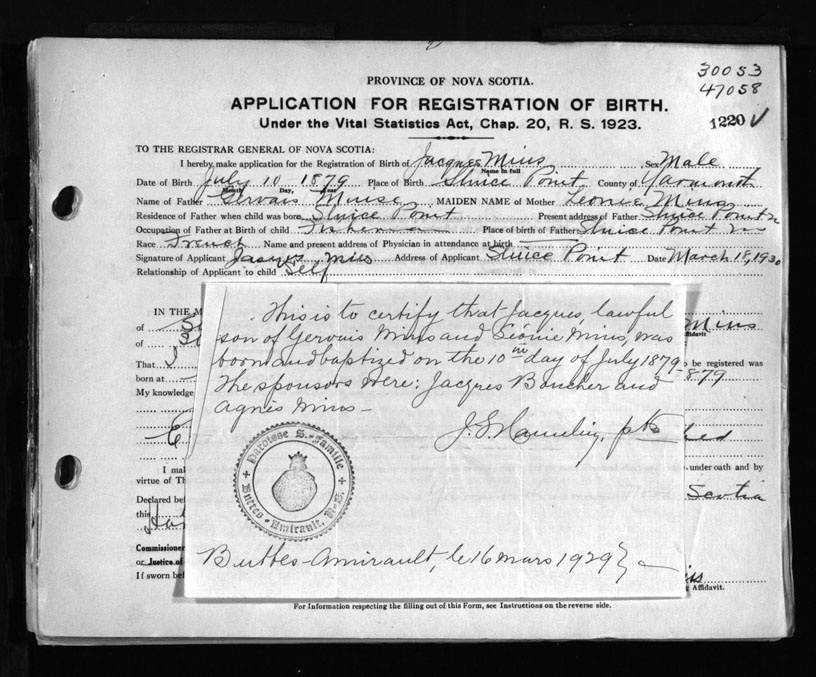 30053
47058
1220 ✓
PROVINCE OF NOVA SCOTIA.
APPLICATION FOR REGISTRATION OF BIRTH.
Under the Vital Statistics Act, Chap. 20, R. S. 1923.
TO THE REGISTRAR GENERAL OF NOVA SCOTIA:
I hereby make application for the Registration of Birth of Jacques Mius Sex Male
Name in full
Date of Birth July 10 1879 Place of Birth Sluice Point County of Yarmouth
Month Year
Name of Father Gervais Muise MAIDEN NAME of Mother Leonie Mius
Residence of Father when child was born Sluice Point Present address of Father Sluice Point
Occupation of Father at Birth of child Fisherman Place of birth of Father Sluice Point
Race French Name and present address of Physician in attendance at birth
Signature of Applicant Jacques Mius Address of Applicant Sluice Point Date March 18, 1930
Relationship of Applicant to child Self
IN THE M
of Mius
of
That to be registered was
born at 1879
My knowledge
I mak under oath and by
virtue of Th
Declared bef Scotia
this
Commissioner
or Justice of
If sworn bef g Affidavit.
This is to certify that Jacques, lawful
son of Gervais Mius and Léonie Mius, was
born and baptized on the 10th day of July 1879.
The sponsors were: Jacques Boucher and
Agnès Mius –
Paroisse S.-Famille
Buttes-Amirault, N.-E.
Buttes-Amirault, le 16 mars 1929
For Information respecting the filling out of this Form, see Instructions on the reverse side.